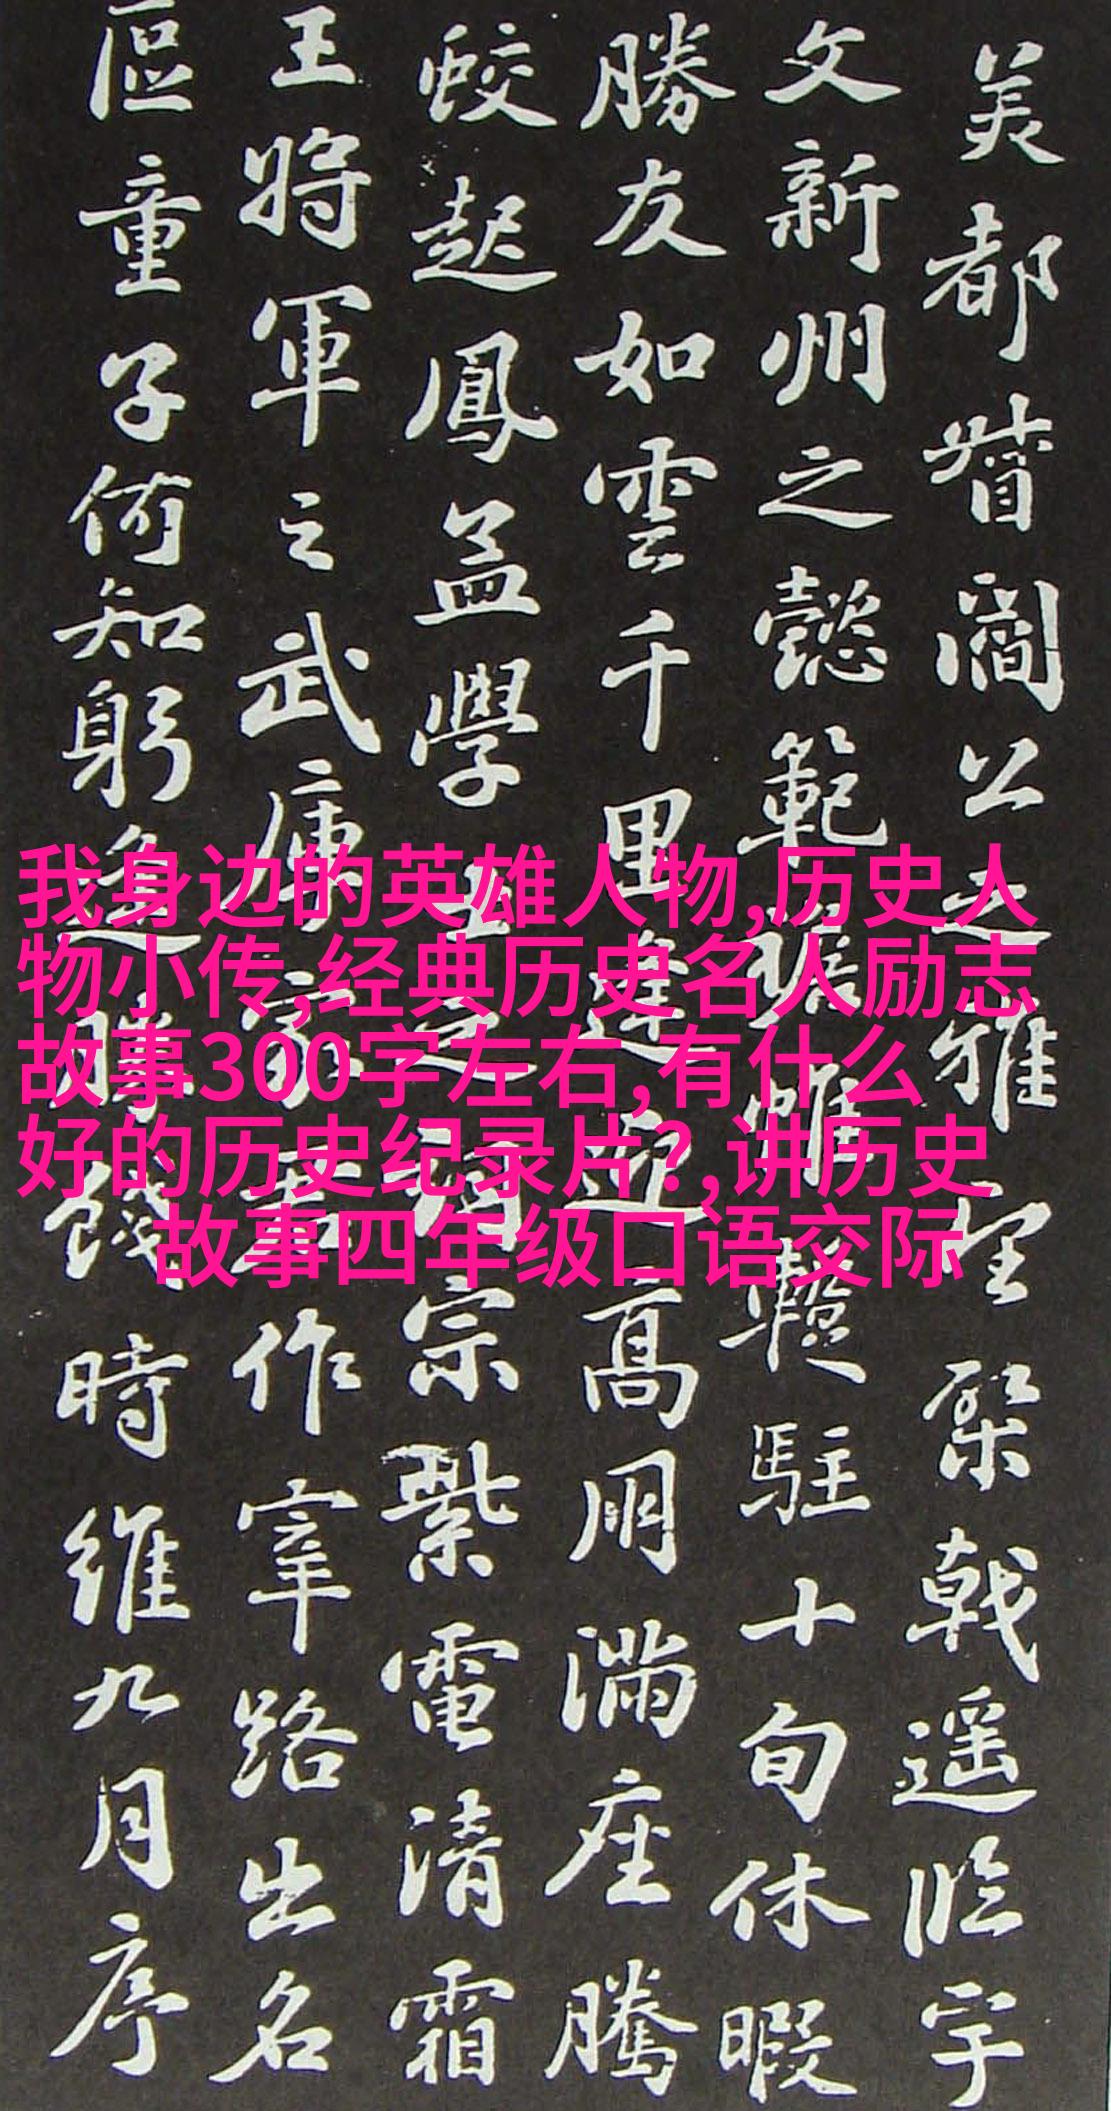 美都督閻公之雅望棨戟遥臨宇
文新州之懿範襜帷蹔駐十旬休暇
勝友如雲千里逢迎高朋滿座騰
蛟起鳳孟學士之詞宗紫電清霜
王將軍之武庫家君作宰路出名
區童子何知躬逢勝餞時維九月序
我身边的英雄人物,历史人
物小传,经典历史名人励志
故事300字左右,有什么
好的历史纪录片?,讲历史
故事四年级口语交际